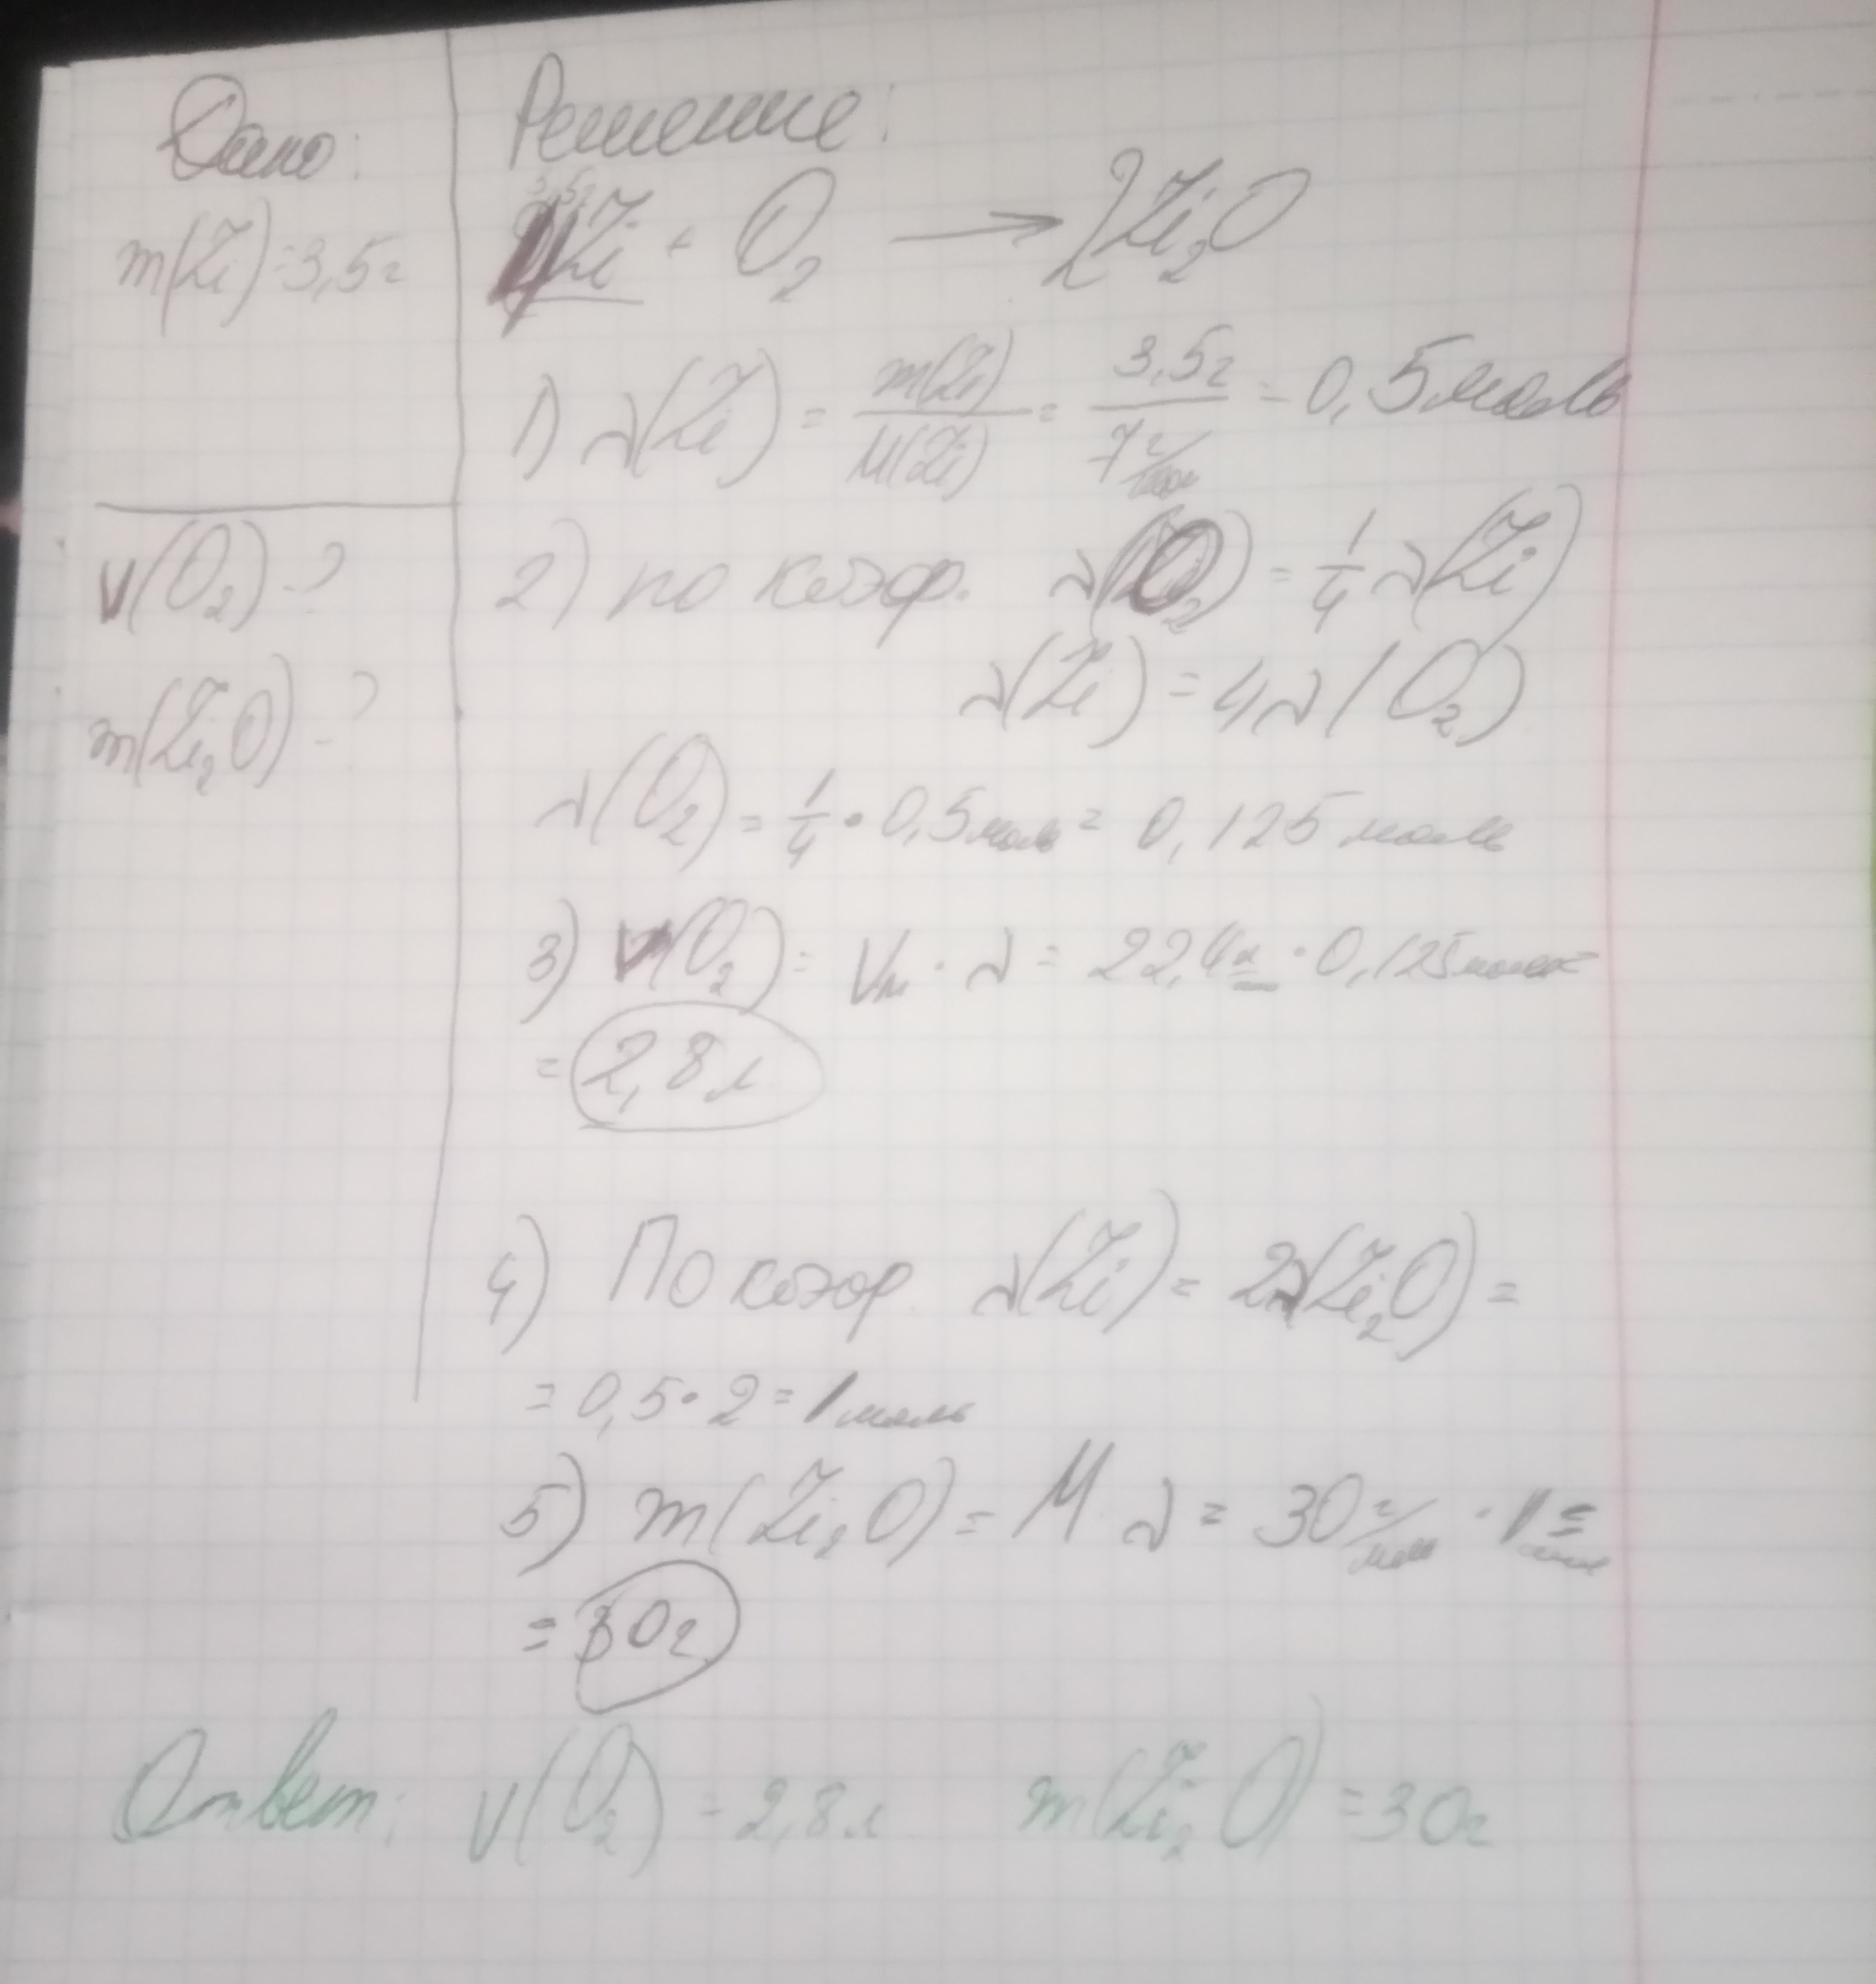 Дано:
m(Li)=3,5г
V(O₂)-?
m(Li₂O)-?
Решение:
3,5г
4Li + O₂ → 2Li₂O
1) λ(Li) = m(Li)/M(Li) = 3,5г/7г/моль = 0,5моль
2) по коэф. λ(O₂) = 1/4 λ(Li)
λ(Li) = 4λ(O₂)
λ(O₂) = 1/4 · 0,5моль = 0,125 моль
3) V(O₂) = Vм · λ = 22,4 · 0,125моль =
= 2,8л
4) По коэф. λ(Li) = 2λ(Li₂O) =
= 0,5 · 2 = 1 моль
5) m(Li₂O) = M λ = 30 г/моль · 1 моль =
= 30г
Ответ: V(O₂) = 2,8л m(Li₂O) = 30г